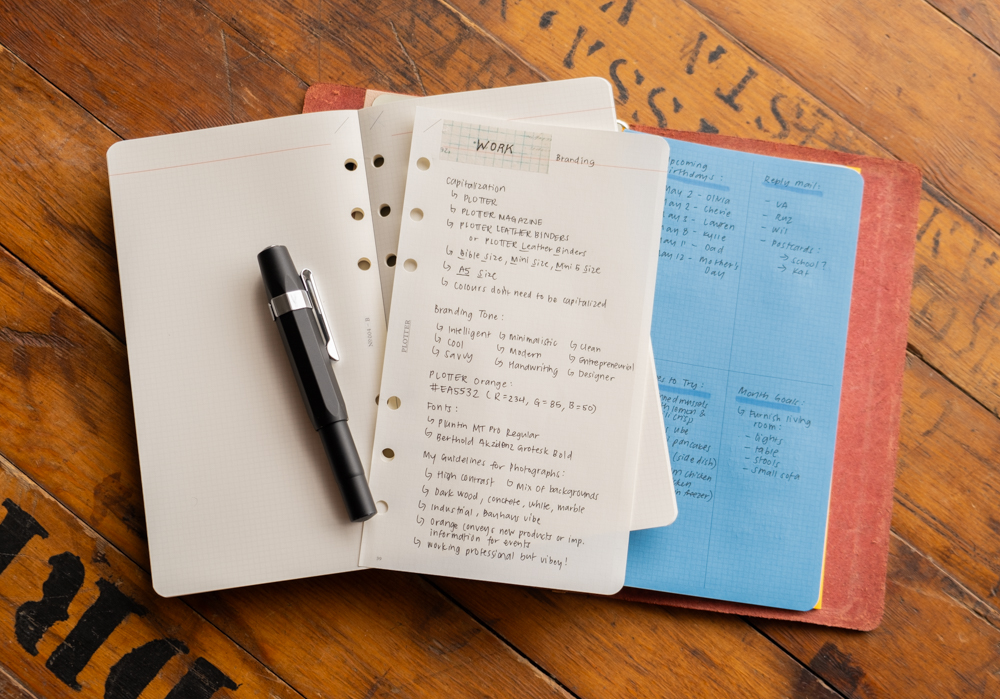 WORK
Branding
Capitalization
↳ PLOTTER
↳ PLOTTER MAGAZINE
↳ PLOTTER LEATHER BINDERS
or PLOTTER Leather Binders
↳ Bible Size, Mini Size, Mini 5 Size
↳ A5 Size
↳ Colours don't need to be capitalized
Branding Tone:
↳ Intelligent ↳ Minimalistic ↳ Clean
↳ Cool ↳ Modern ↳ Entrepreneurial
↳ Savvy ↳ Handwriting ↳ Designer
PLOTTER Orange:
#EA5532 (R=234, G=85, B=50)
Fonts:
↳ Plantin MT Pro Regular
↳ Berthold Akzidenz Grotesk Bold
My Guidelines for Photographs:
↳ High contrast ↳ Mix of backgrounds
↳ Dark wood, concrete, white, marble
↳ Industrial, Bauhaus vibe
↳ Orange conveys new products or imp.
information for events
↳ Working professional but vibey!
PLOTTER
pcoming
irthdays:
May 2 - Olivia
ay 2 - Cherie
ay 2 - Lauren
ay 8 - Kylie
ay 11 - Dad
ay 12 - Mother's
Day
Reply mail:
- UA
- Wil
- Postcards:
→ School?
→ Kat
es to Try:
ube
pancakes
(side dish)
chicken
freezer)
Month Goals:
↳ Furnish living
room:
- lights
- table
- stools
- small sofa